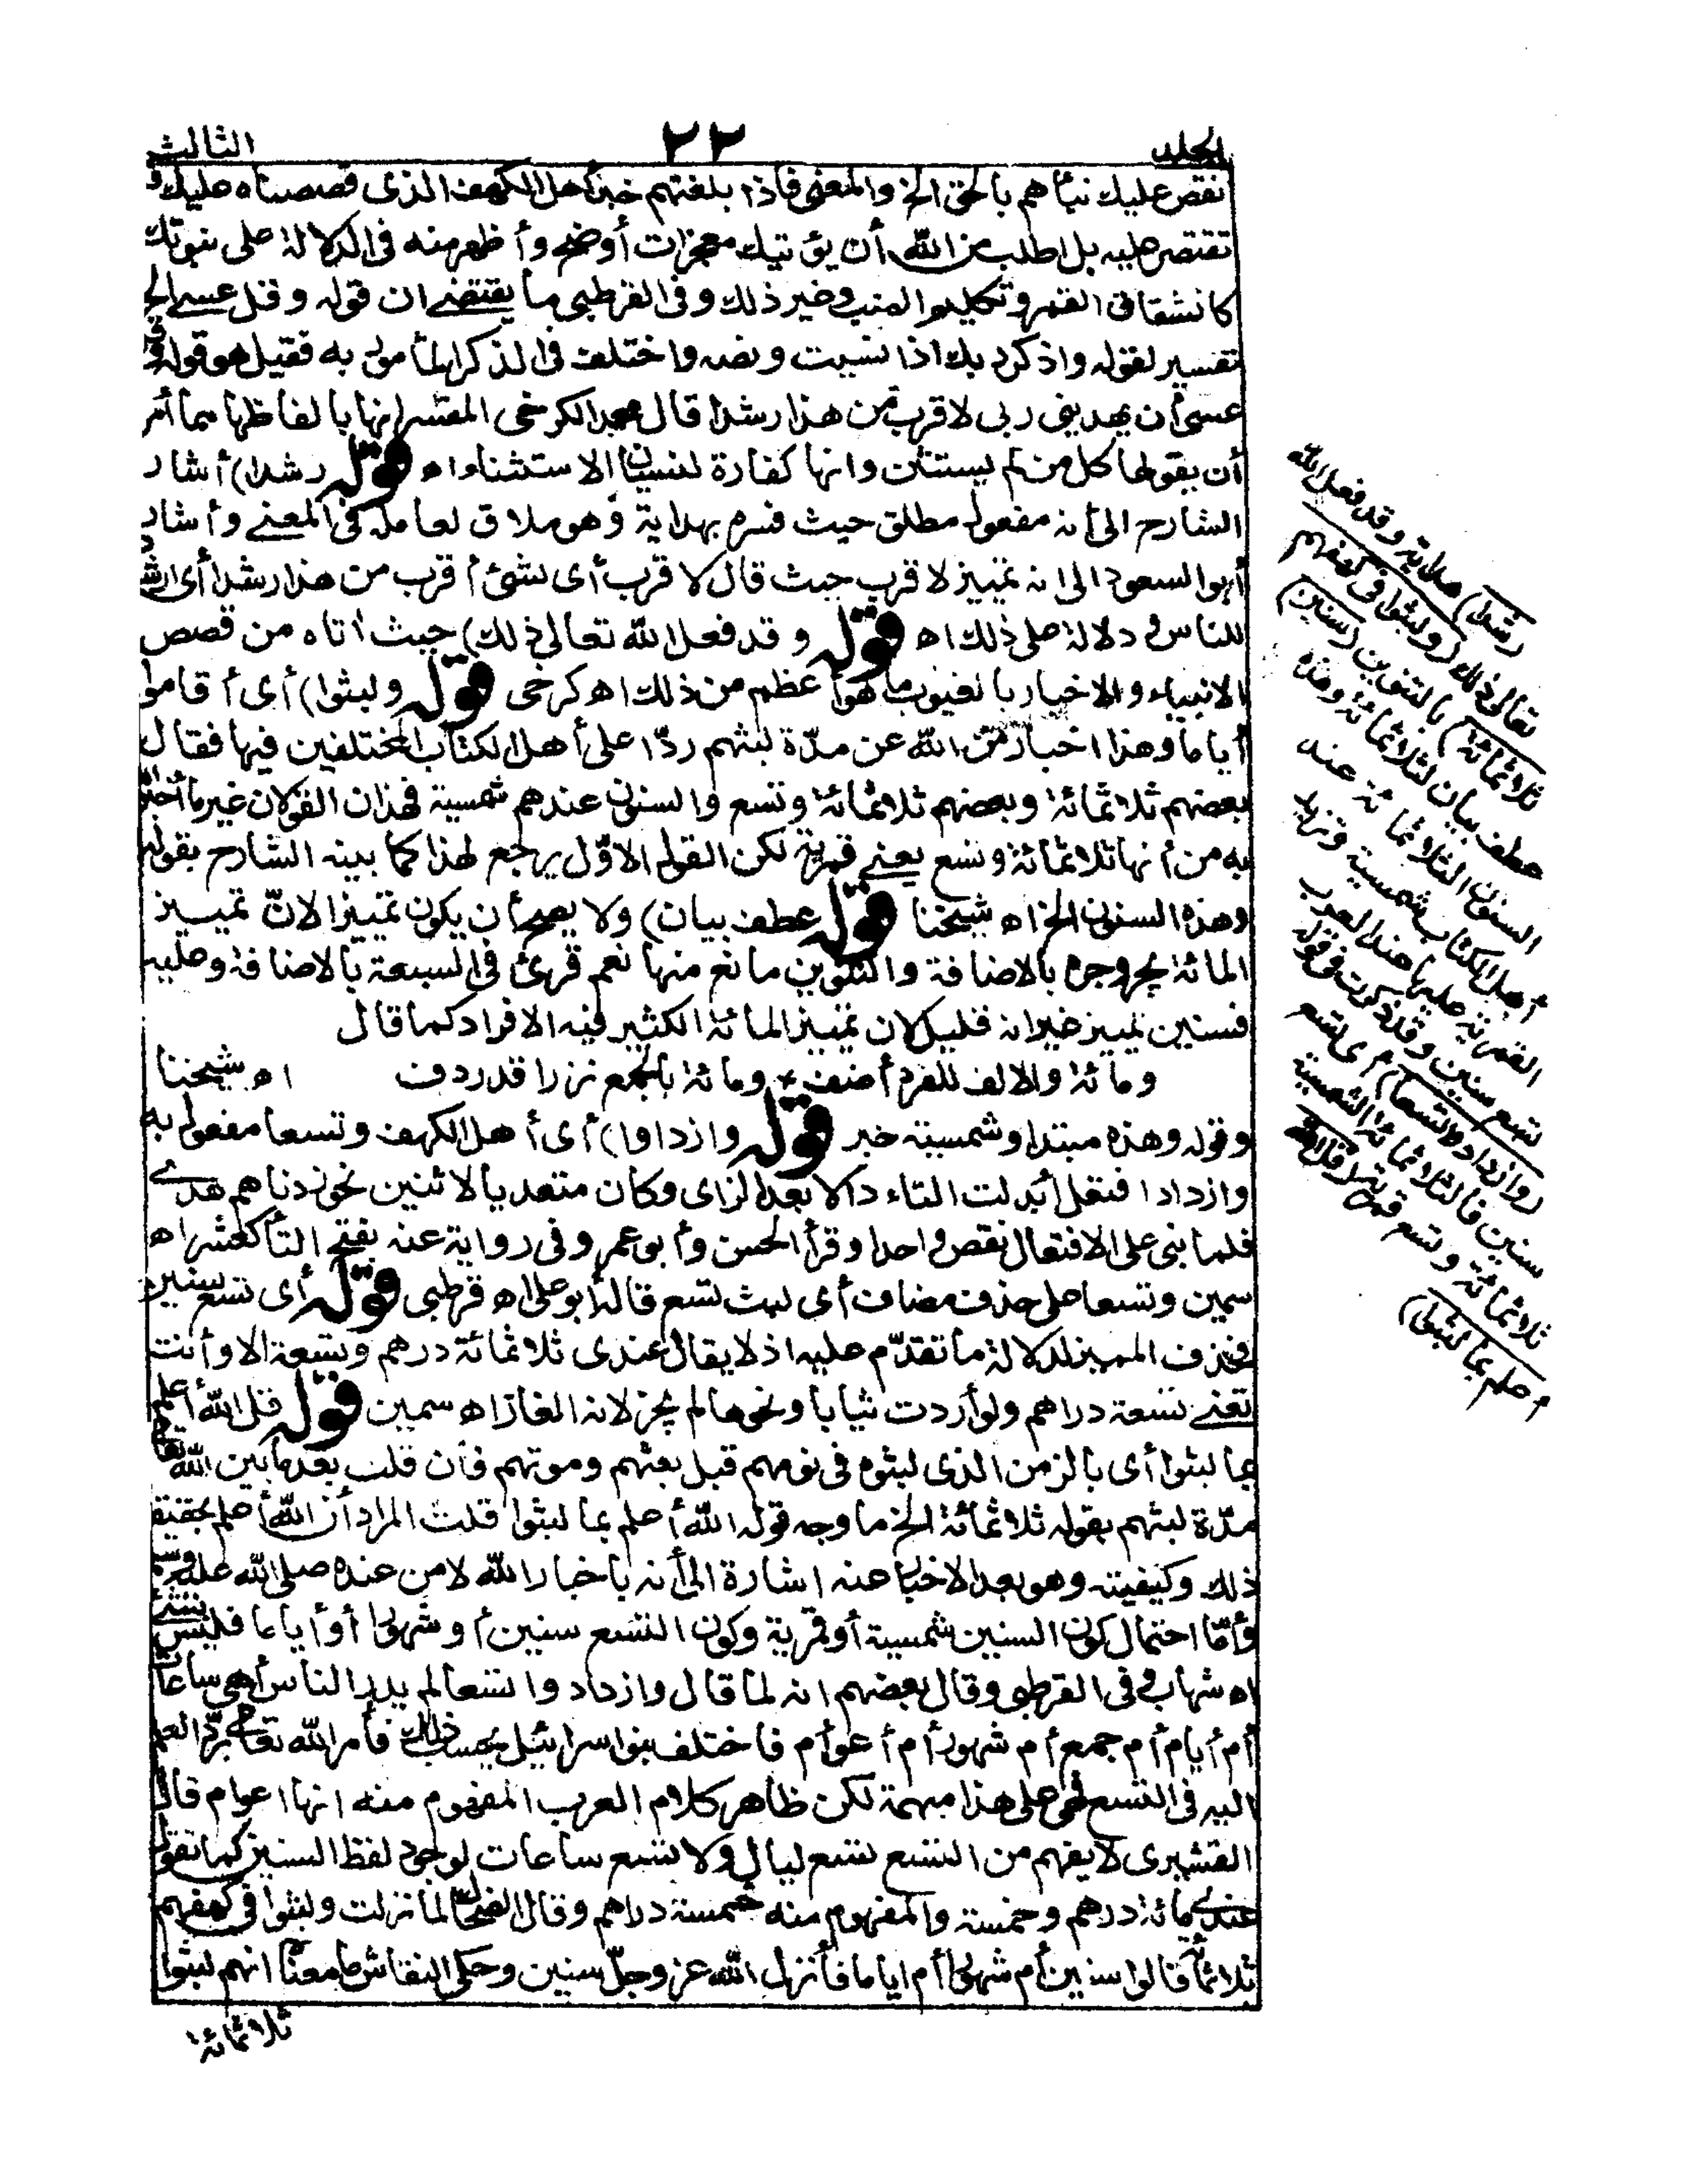 الجلد
٢٢
الثالث
نقص عليك نبأهم بالحق الخ والمعنى فاذا بلغتهم خبر أهل الكهف الذى قصصناه عليك و
تقتصر عليه بل اطلب من الله أن يؤتيك معجزات أوضح وأظهر منه فى الدلالة على نبوتك
كانشقاق القمر وتكليم الضب وغير ذلك وفى القرطبى ما يقتضى ان قوله وقل عسى الخ
تفسير لقوله واذكر ربك اذا نسيت ونصه واختلف فى الذكر المأمور به فقيل هو قوله وقل
عسى أن يهدينى ربى لاقرب من هذا رشدا قال محمد الكرخى المفسر انها بالفاظها مما أمر
أن يقولها كل من لم يستثن وانها كفارة لنسيان الاستثناء اه قوله رشدا) أشار
الشارح الى أنه مفعول مطلق حيث فسره بهداية وهو ملاق لعامله فى المعنى وأشار
أبو السعود الى انه تمييز لاقرب حيث قال لاقرب أى لشئ أقرب من هذا رشدا أى ارشادا
للناس ودلالة على ذلك اه قوله وقد فعل الله تعالى ذلك) حيث اتاه من قصص
الانبياء والاخبار بالغيوب ما هو أعظم من ذلك اه كرخى قوله ولبثوا) أى أقاموا
أياما وهذا اخبار من الله عن مدّة لبثهم ردّا على أهل الكتاب المختلفين فيها فقال
بعضهم ثلاثمائة وبعضهم ثلاثمائة وتسع والسنون عندهم شمسية فهذان القولان غير ما أخبر الله
به من أنها ثلاثمائة وتسع يعنى قمرية لكن القول الاوّل يرجع لهذا كما بينه الشارح بقوله
وهذه السنون الخ اه شيخنا قوله عطف بيان) ولا يصح أن يكون تمييزا لانّ تمييز
المائة يجر وجره بالاضافة والتنوين مانع منها نعم قرئ فى السبعة بالاضافة وعليه
فسنين تمييز غير انه قليل لان تمييز المائة الكثير فيه الافراد كما قال
ومائة والالف للفرد أضف ٭ ومائة بالجمع نزرا قد ردف اه شيخنا
وقوله وهذه مبتدا وشمسية خبر قوله وازدادوا) أى أهل الكهف وتسعا مفعول به
وازداد افتعل أبدلت التاء دالا بعد الزاى وكان متعديا لاثنين نحو زدناهم هدى
فلما بنى على الافتعال نقص واحدا وقرأ الحسن وأبو عمرو فى رواية عنه بفتح التاء كعشر اه
سمين وتسعا على حذف مضاف أى لبث تسع قاله أبو على اه قرطبى قوله أى تسع سنين
فحذف المميز لدلالة ما تقدّم عليه اذ لا يقال عندى ثلاثمائة درهم وتسعة الا وأنت
تعنى تسعة دراهم ولو أردت ثيابا ونحوها لم يجز لانه الغاز اه سمين قوله قل الله أعلم
بما لبثوا أى بالزمن الذى لبثوه فى نومهم قبل بعثهم وموتهم فان قلت بعد ما بين الله تعالى
مدّة لبثهم بقوله ثلاثمائة الخ ما وجه قوله الله أعلم بما لبثوا قلت المراد أن الله أعلم بحقيقة
ذلك وكيفيته وهو بعد الاخبار عنه اشارة الى أنه باخبار الله لا من عنده صلى الله عليه وسلم
وأمّا احتمال كون السنين شمسية أو قمرية وكون التسع سنين أو شهورا أو أياما فليس بشئ
اه شهاب وفى القرطبى وقال بعضهم انه لما قال وازدادوا تسعا لم يدر الناس أهى ساعات
أم أيام أم جمع أم شهور أم أعوام فاختلف بنوا اسرائيل بحسب ذلك فأمر الله تعالى بردّ العلم
اليه فى التسع فهى على هذا مبهمة لكن ظاهر كلام العرب المفهوم منه انها اعوام قال
القشيرى لا يفهم من التسع تسع ليال ولا تسع ساعات لوجود لفظ السنين كما تقول
عندى مائة درهم وخمسة والمفهوم منه خمسة دراهم وقال الضحاك لما نزلت ولبثوا فى كهفهم
ثلاثمائة قالوا سنين أم شهورا أم اياما فأنزل الله عز وجلّ سنين وحكى النقاش ما معناه انهم لبثوا
ثلاثمائة
رشدا) هداية وقد فعل الله
تعالى ذلك (ولبثوا فى كهفهم
ثلاثمائة) بالتنوين (سنين)
عطف بيان لثلاثمائة وهذه
السنون الثلاثمائة عند
أهل الكتاب شمسية وتزيد
القمرية عليها عند العرب
تسع سنين وقد ذكرت فى قوله
(وازدادوا تسعا) أى تسع
سنين فالثلاثمائة الشمسية
ثلاثمائة وتسع قمرية (قل الله
أعلم بما لبثوا)